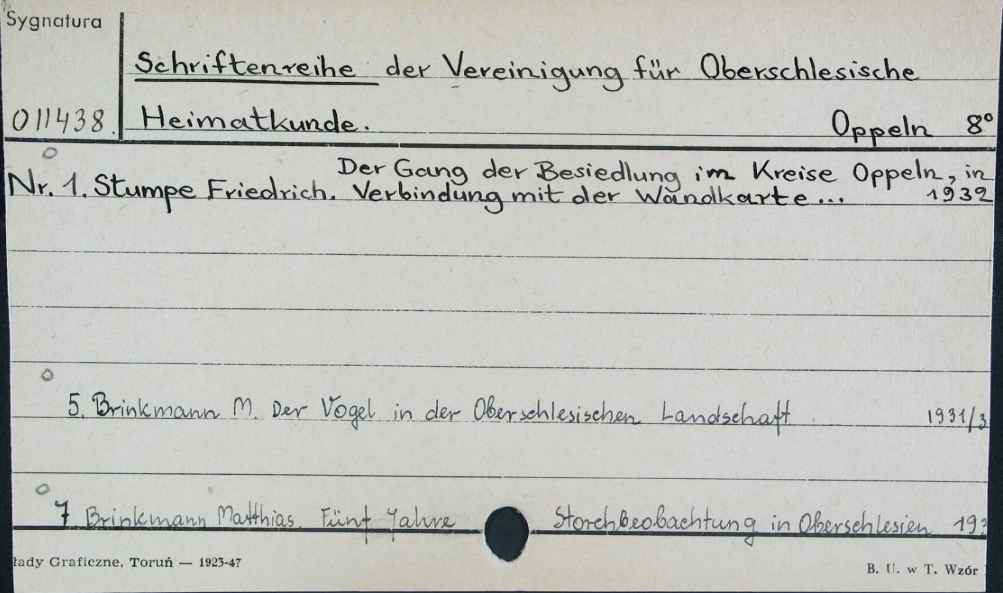 Sygnatura
Schriftenreihe der Vereinigung für Oberschlesische
011438. Heimatkunde. Oppeln 8°
Der Gang der Besiedlung im Kreise Oppeln, in
Nr. 1. Stumpe Friedrich. Verbindung mit der Wandkarte... 1932
5. Brinkmann M. Der Vogel in der Oberschlesischen Landschaft 1931/3
7 Brinkmann Matthias. Fünf Jahre Storchbeobachtung in Oberschlesien 193
łady Graficzne, Toruń — 1923-47
B. U. w T. Wzór